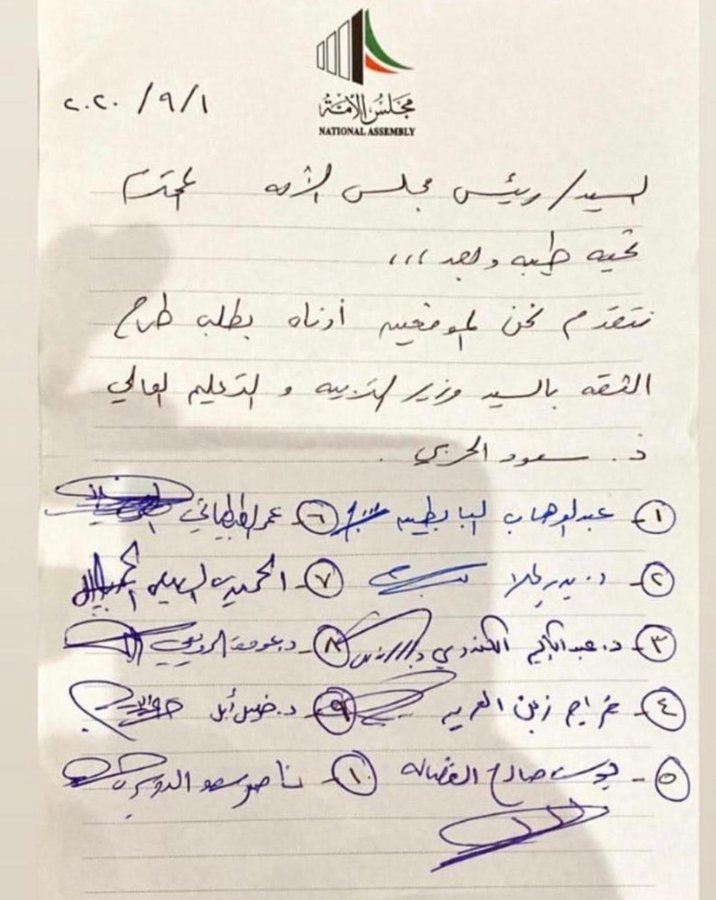 مجلس الأمة
NATIONAL ASSEMBLY
٢٠٢٠/٩/١
السيد/ رئيس مجلس الأمه المحترم
تحيه طيبه وبعد ،،،
نتقدم نحن الموقعين أدناه بطلب طرح
الثقه بالسيد وزير التربيه و التعليم العالي
د. سعود الحربي .
١- عبدالوهاب البابطين
٦- عمر الطبطبائي
٢- د. بدر الملا
٧- الحميدي السبيعي
٣- د. عبدالكريم الكندري
٨- د. عودة الرويعي
٤- فراج زبن العربيد
٩- د. خليل أبل
٥- يوسف صالح الفضاله
١٠- ناصر سعد الدوسري